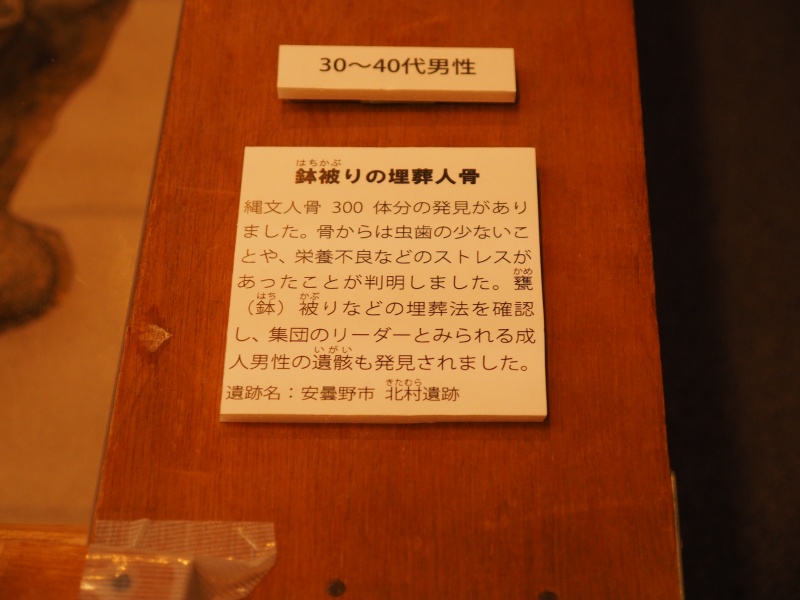 30～40代男性
はちかぶ
鉢被りの埋葬人骨
縄文人骨 300 体分の発見があり
ました。骨からは虫歯の少ないこ
とや、栄養不良などのストレスが
あったことが判明しました。甕
かめ
はち かぶ
（鉢）被りなどの埋葬法を確認
し、集団のリーダーとみられる成
いがい
人男性の遺骸も発見されました。
きたむら
遺跡名：安曇野市 北村遺跡